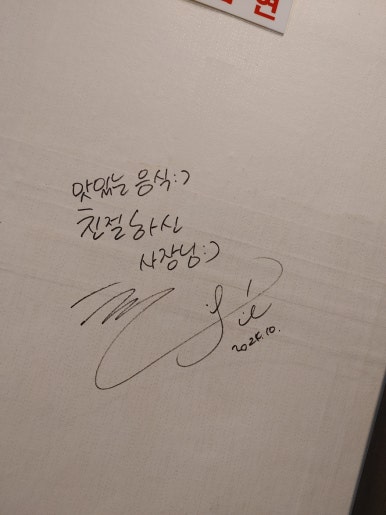 현
맛있는 음식:)
친절하신
사장님:)
2024.10.